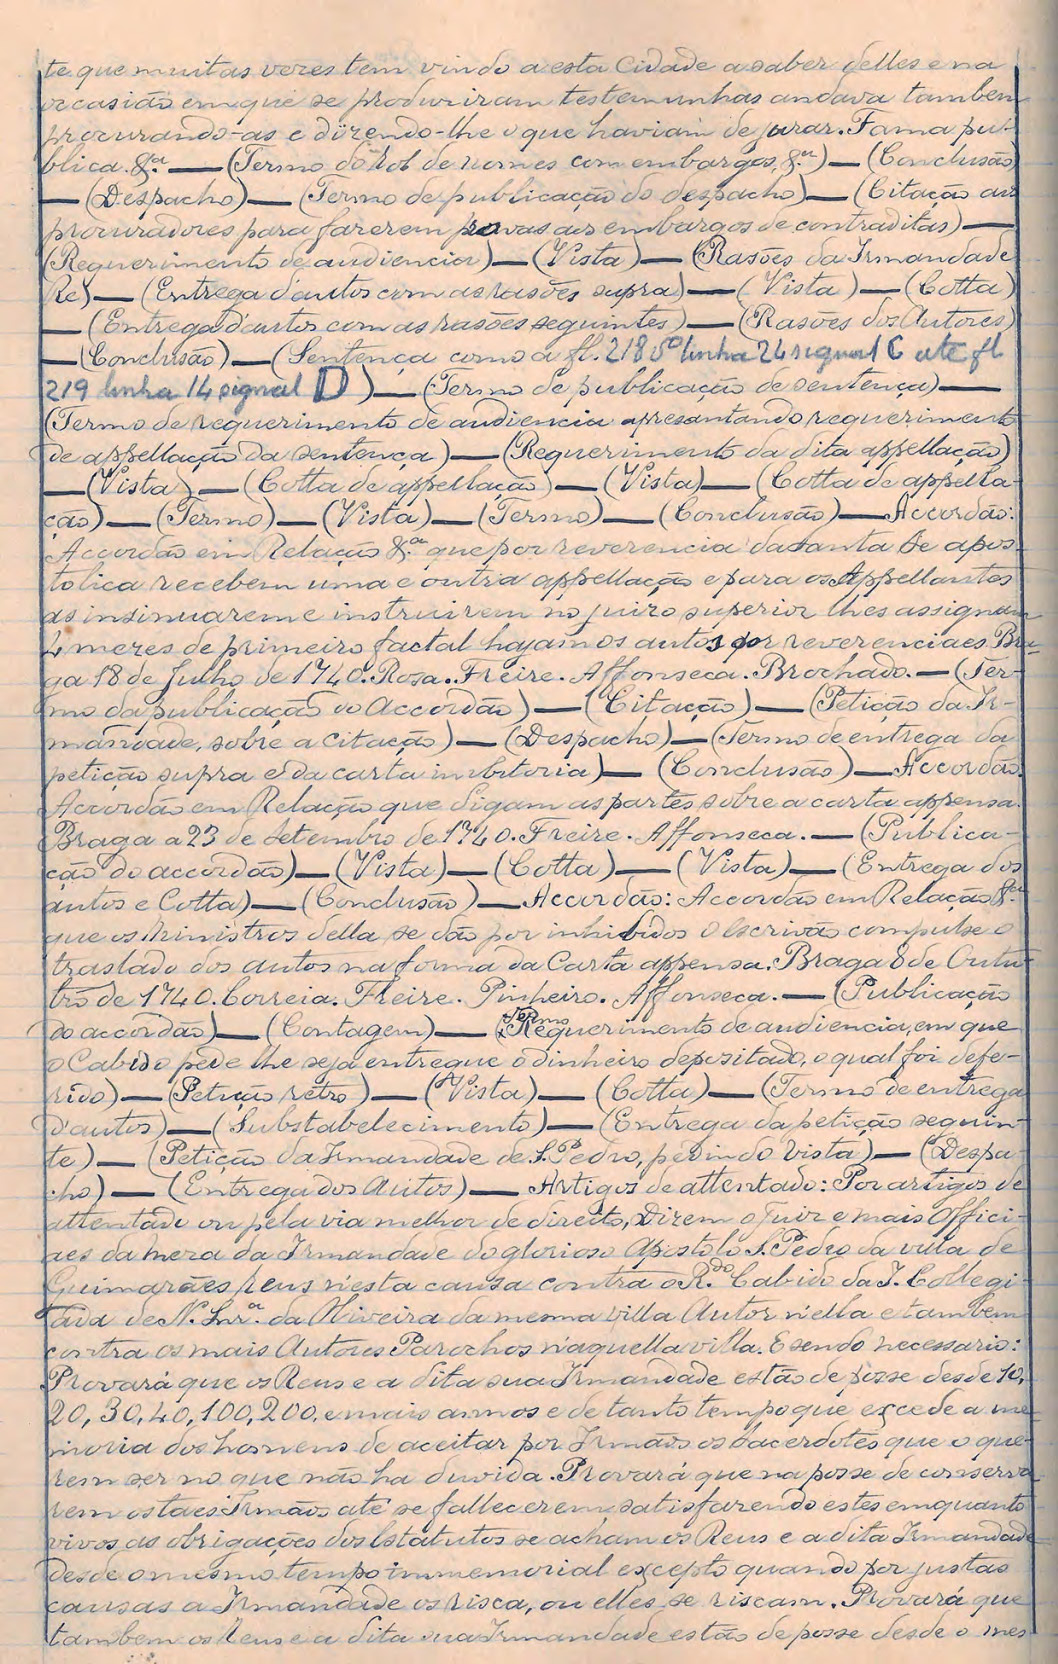 te que muitas vezes tem vindo a esta Cidade a saber delles e na
occasião em que se produziram testemunhas andava tambem
procurando-as e dizendo-lhe o que haviam de jurar. Fama pu-
blica. &.ª — (Termo do rol de nomes com embargos, &.ª) — (Conclusão)
— (Despacho) — (Termo de publicação do despacho) — (Citação aos
procuradores para fazerem provas aos embargos de contraditas) —
(Requerimento de audiencia) — (Vista) — (Rasões da Irmandade
Re) — (Entrega d'autos com as rasões supra) — (Vista) — (Cotta)
— (Entrega d'autos com as rasões seguintes) — (Rasões dos Autores)
— (Conclusão) — (Sentença como a fl. 218 vº linha 24 signal C ate fl.
219 linha 14 signal D) — (Termo de publicação de sentença) —
(Termo de requerimento de audiencia apresantando requerimento
de appellação da sentença) — (Requerimento da dita appellação)
— (Vista) — (Cotta de appellação) — (Vista) — (Cotta de appella-
ção) — (Termo) — (Vista) — (Termo) — (Conclusão) — Accordão:
Accordão em Relação &.ª que por reverencia da Santa Se apos-
tolica recebem uma e outra appellação e para os Appellantes
as insinuarem e instruirem no juizo superior lhes assignam
4 mezes de primeiro factal hajam os autos por reverenciaes Bra-
ga 18 de Julho de 1740. Rosa. Freire. Affonseca. Brochado. — (Ter-
mo da publicação do Accordão) — (Citação) — (Petição da Ir-
mandade, sobre a citação) — (Despacho) — (Termo de entrega da
petição supra e da carta inibitoria) — (Conclusão) — Accordão:
Accordão em Relação que digam as partes sobre a carta appensa.
Braga a 23 de Setembro de 1740. Freire. Affonseca. — (Publica-
ção do accordão) — (Vista) — (Cotta) — (Vista) — (Entrega dos
autos e Cotta) — (Conclusão) — Accordão: Accordão em Relação &.ª
que os Ministros della se dão por inhibidos o Escrivão compulse o
traslado dos autos na forma da Carta appensa. Braga 8 de Outu-
bro de 1740. Correia. Freire. Pinheiro. Affonseca. — (Publicação
do accordão) — (Contagem) — (Termo Requerimento de audiencia, em que
o Cabido pede lhe seja entregue o dinheiro depositado, o qual foi defe-
rido) — (Petição retro) — (Vista) — (Cotta) — (Termo de entrega
d'autos) — (Substabelecimento) — (Entrega da petição seguin-
te) — (Petição da Irmandade de S. Pedro, pedindo Vista) — (Despa-
cho) — (Entrega dos Autos) — Artigos de attentado: Por artigos de
attentado ou pela via melhor de direito, Dizem o Juiz e mais Offici-
aes da Meza da Irmandade do glorioso Apostolo S. Pedro da villa de
Guimarães Reus n'esta causa contra o R.do Cabido da I. Collegi-
ada de N. Snr.ª da Oliveira da mesma villa Autor n'ella e tambem
contra os mais Autores Parochos n'aquella villa. E sendo necessario:
Provará que os Reus e a dita sua Irmandade estão de posse desde 10,
20, 30, 40, 100, 200, e mais annos e de tanto tempo que excede a me-
moria dos homens de aceitar por Irmãos os Sacerdotes que o que-
rem ser no que não ha duvida. Provará que na posse de conserva-
rem os taes Irmãos até se fallecerem, satisfazendo estes emquanto
vivos as obrigações dos Estatutos se acham os Reus e a dita Irmandade
desde o mesmo tempo immemorial excepto quando por justas
causas a Irmandade os risca, ou elles se riscam. Provará que
tambem os Reus e a dita sua Irmandade estão de posse desde o mes-